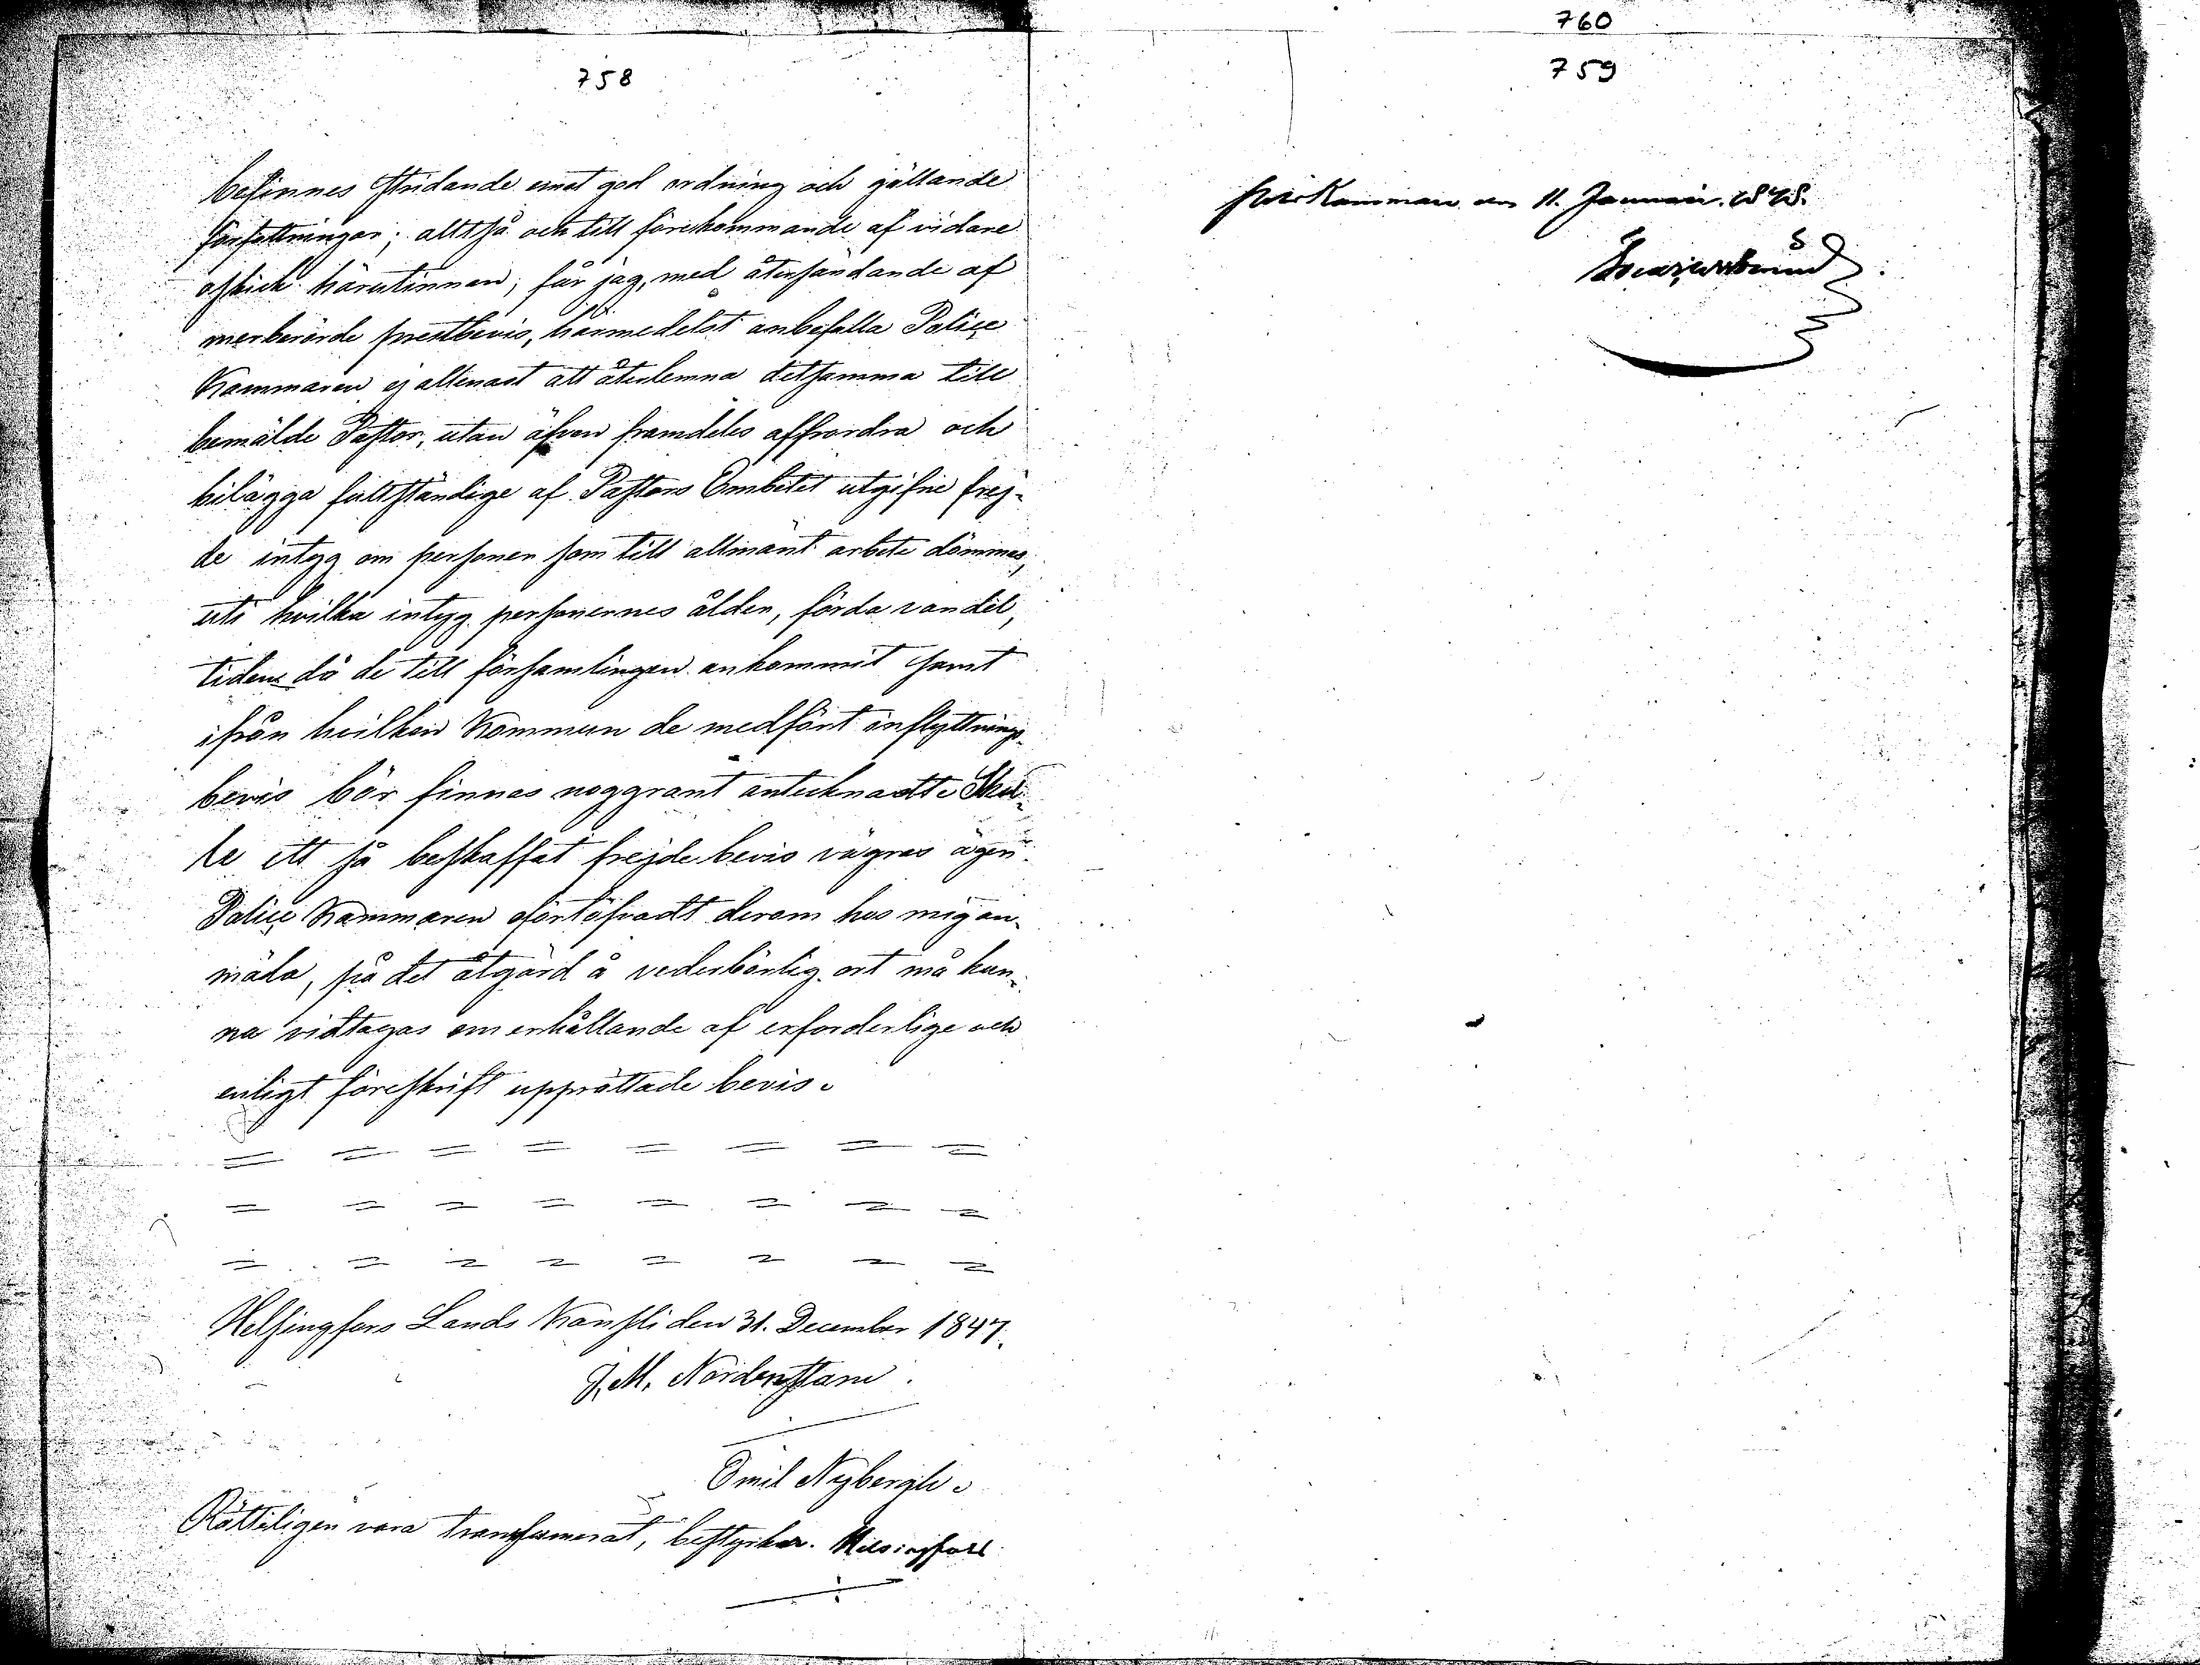 758
befinnes stridande emot god ordning och gällande
författningar; alltså och till förekommande af vidare
oskick härutinnan; får jag, med återsändande af
merberörde prestbevis, härmedelst anbefalla Police
Kammaren ej allenast att återlemna detsamma till
bemälde Pastor, utan äfven framdeles affordra och
bilägga fullständige af Pastors Embetet utgifne frej-
de intyg om personer som till allmänt arbete dömmes,
uti hvilka intyg personernes ålder, förda vandel,
tiden då de till församlingen ankommit samt
ifrån hvilken Kommun de medfört inflyttnings-
bevis bör finnas noggrant antecknadt. Skul-
le ett så beskaffat frejdebevis vägras äger
Police Kammaren ofördröjadt derom hos mig an-
mäla, på det åtgärd å vederbörlig ort må kun-
na vidtagas om erhållande af erforderlige och
enligt föreskrift upprättade bevis.
Helsingfors Lands Kansli den 31. December 1847.
J. M. Nordenstam.
Emil Nybergh.
Rätteligen vara transumerat, bestyrker. Helsingfors
760
759
Kammare den 11. Januari 1848.